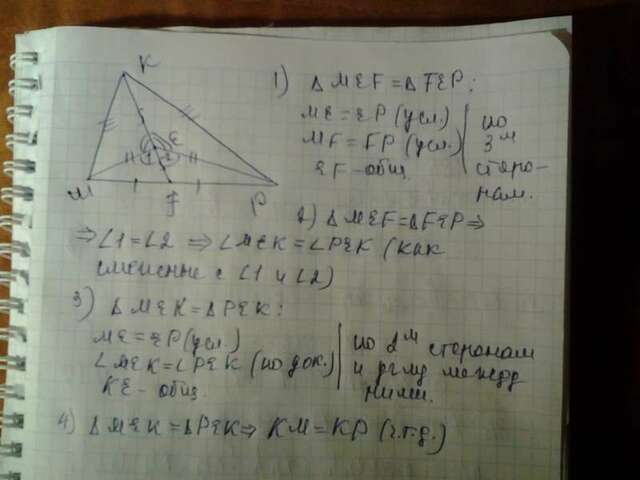 K
E
1 2
M F P
1) Δ MEF = Δ FEP:
ME = EP (усл.)
MF = FP (усл.)
EF - общ.
по
3м
сторо-
нам.
2) Δ MEF = Δ FEP ⇒
⇒ ∠1 = ∠2 ⇒ ∠MEK = ∠PEK (как
смежные с ∠1 и ∠2)
3) Δ MEK = Δ PEK:
ME = EP (усл.)
∠MEK = ∠PEK (по док.)
KE - общ.
по 2м сторонам
и углу между
ними.
4) Δ MEK = Δ PEK ⇒ KM = KP (ч.т.д.)